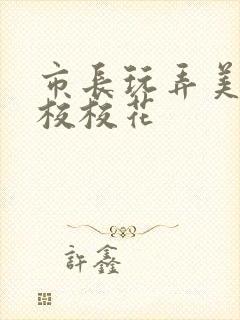 市長玩弄美
校校花
許鑫